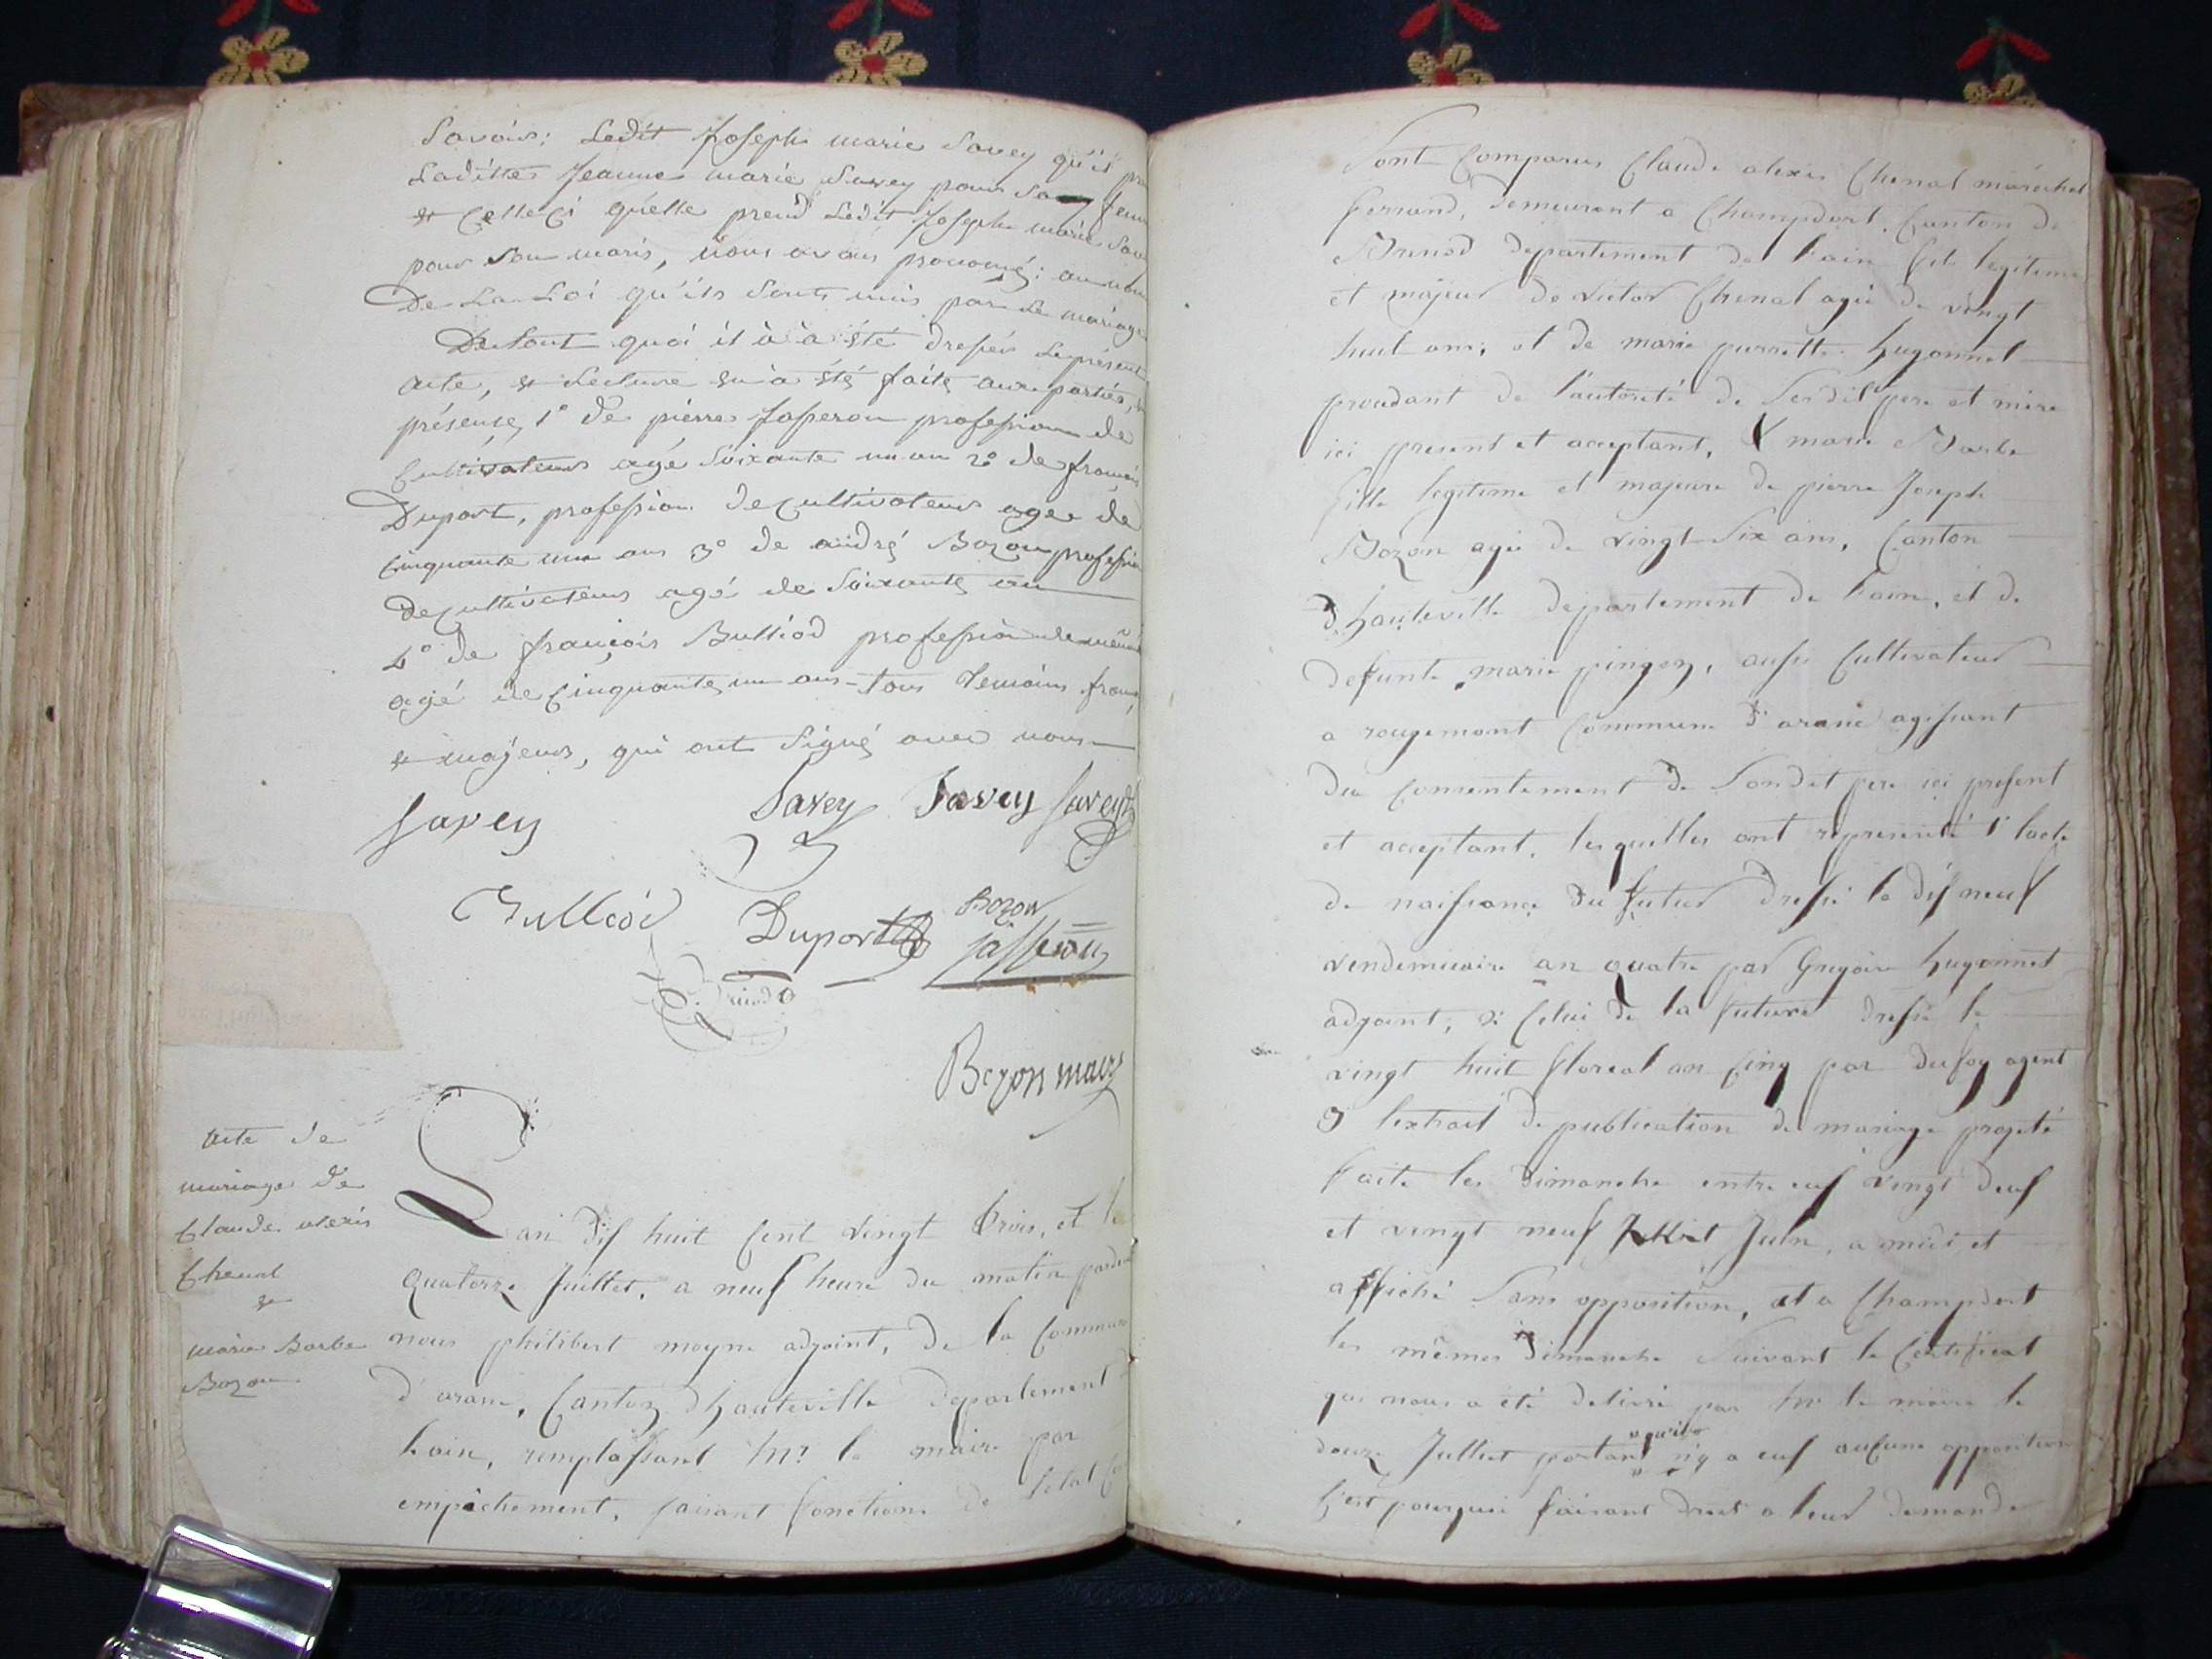 Savoir: Ledit Joseph marie Savey qu'il
Ladittes Jeanne marie Savey pour Sa
et celleci qu'elle prend Ledit Joseph marie
pour Son maris, nous avons prononcé: au nom
De La Loi qu'ils Sont unis par Le mariage
De tout quoi il à à été dressés Le présent
acte, et Lecture en à été faite aux parties,
présence, 1° de pierre Jasseron profession de
Cultivateurs agé Soixante un an 2° de françois
Duport, profession de cultivateurs agee de
Cinquante un ans 3° de andré Bozon profession
de cultivateurs agé de Soixante an
4° de françois Bulliod profession de même
agé de Cinquante un ans - tous temoins
et majeurs, qui ont Signé avec nous
Savey Savey Savey Savey
Bulliod Duport Bozon
Jasseron
Bozon maire
acte de
mariage de
Claude alexis
Chenal
et
marie Barbe
Bozon
L'an dix huit Cent vingt trois, et le
quatorze Juillet, a neuf heure du matin
nous philibert moyne adjoint, de la Commune
d'aranc, Canton d'hauteville departement
lain, remplassant Mr le maire par
empêchement, faisant fonctions de letat
Sont Comparus Claude alexis Chenal maréchal
ferrand, demeurant a Champdort, Canton de
Brenod departement de l'ain fils legitime
et majeur de victor Chenal agée de vingt
huit ans, et de marie pierrette hugonnet
proudant de l'autorité de Sesdit pere et mere
ici present et acceptant, & marie Barbe
fille legitime et majeure de pierre Joseph
Bozon agée de vingt Six ans, Canton
d'hauteville departement de l'ain, et de
defunte marie pingon, aussi Cultivateur
a rougemont Commune d'aranc agissant
du consentement de Sondit pere ici present
et acceptant, lesquelles ont representé 1° lacte
de naissance du futur dressé le dix neuf
vendemiaire an quatre par Gregoire hugonnet
adjoint, 2° Celui de la future dressé le
vingt huit floreal an Cinq par dufoy agent
3 lextrait de publication de mariage projeté
faite les dimanche entre eux vingt deux
et vingt neuf Juin, a midi et
affiché Sans opposition, et a Champdort
les mêmes dimanche Suivant le Certificat
qui nous a été delivré par Mr le maire le
douze Juillet portant qu'il n'y a eut aucune opposition
C'est pourquoi faisant droit a leur demande